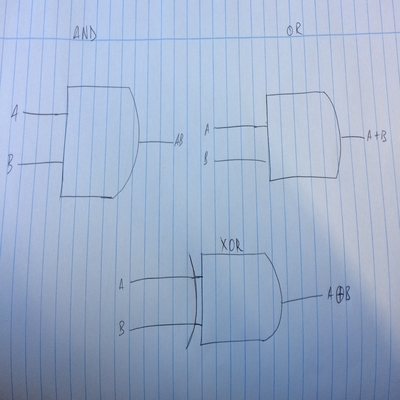 AND
OR
A
B
AB
A
B
A+B
XOR
A
B
A⊕B